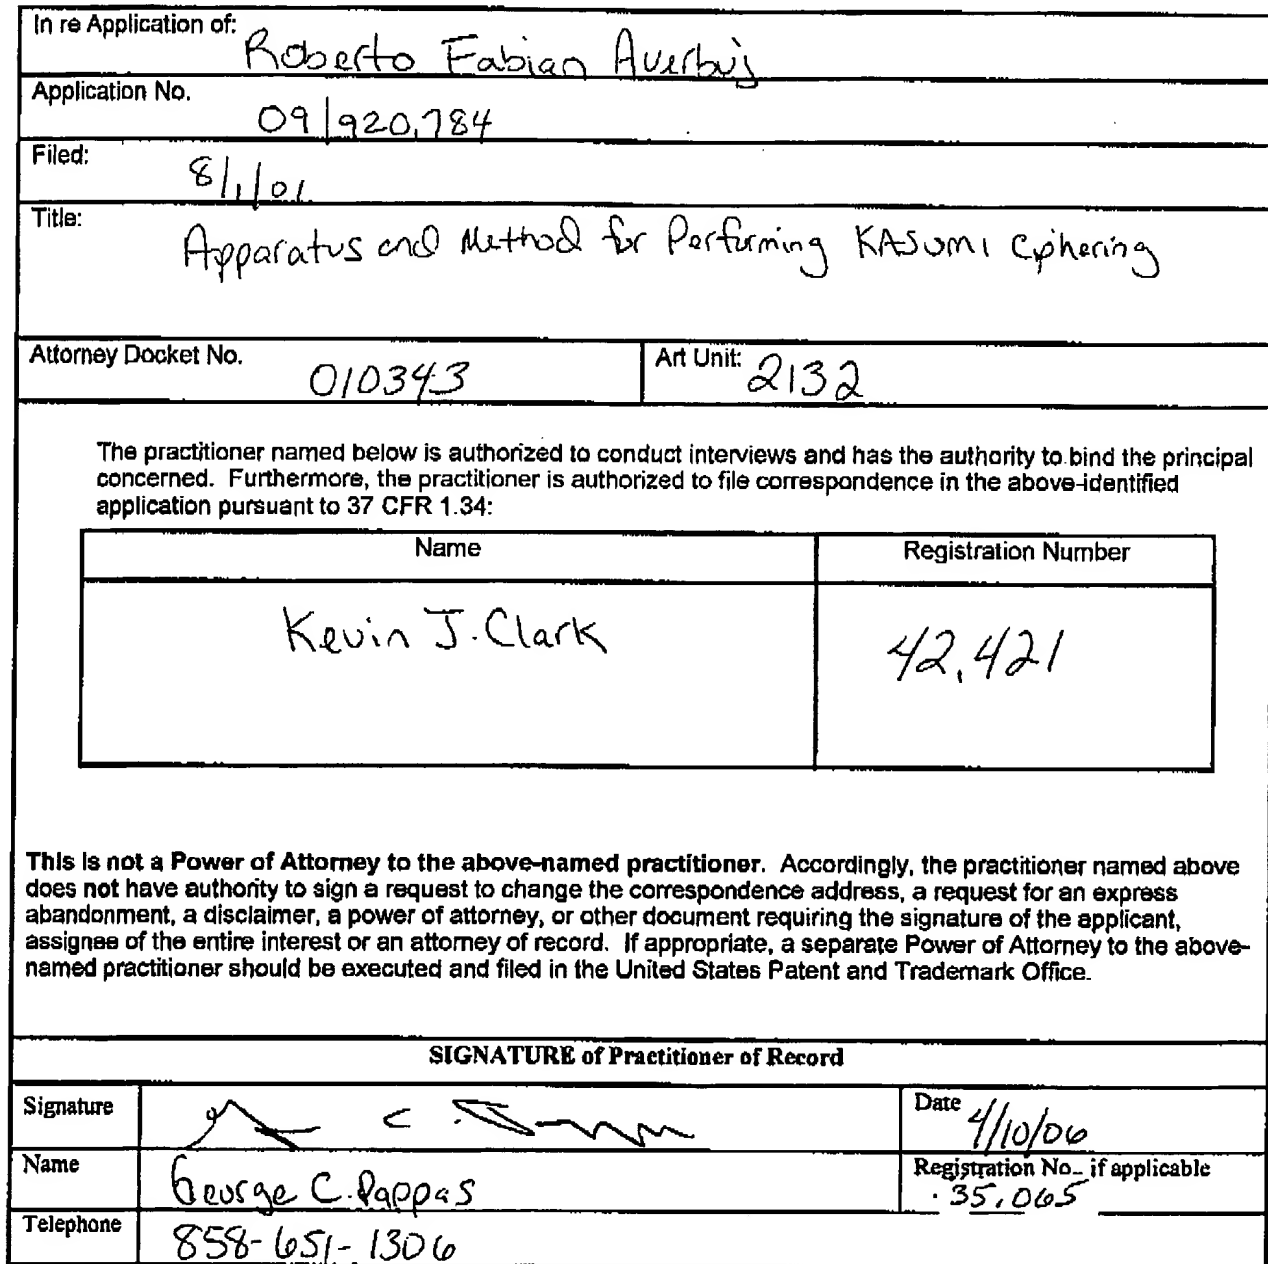 In re Application of: Roberto Fabian Averbuj
Application No. 09/920,784
Filed: 8/1/01
Title: Apparatus and Method for Performing KASUMI Ciphering
Attorney Docket No. 010343 Art Unit: 2132
The practitioner named below is authorized to conduct interviews and has the authority to bind the principal
concerned. Furthermore, the practitioner is authorized to file correspondence in the above-identified
application pursuant to 37 CFR 1.34:
Name Registration Number
Kevin J. Clark 42,421
This is not a Power of Attorney to the above-named practitioner. Accordingly, the practitioner named above
does not have authority to sign a request to change the correspondence address, a request for an express
abandonment, a disclaimer, a power of attorney, or other document requiring the signature of the applicant,
assignee of the entire interest or an attorney of record. If appropriate, a separate Power of Attorney to the above-
named practitioner should be executed and filed in the United States Patent and Trademark Office.
SIGNATURE of Practitioner of Record
Signature Date 4/10/06
Name George C. Pappas Registration No. if applicable 35,065
Telephone 858-651-1306